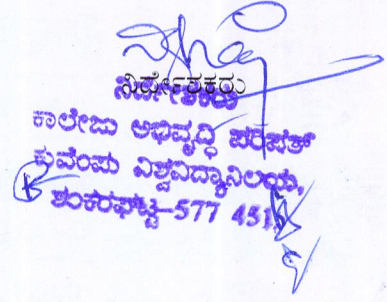 ನಿರ್ದೇಶಕರು
ನಿರ್ದೇಶಕರು
ಕಾಲೇಜು ಅಭಿವೃದ್ಧಿ ಪರಿಷತ್
ಕುವೆಂಪು ವಿಶ್ವವಿದ್ಯಾನಿಲಯ,
ಶಂಕರಘಟ್ಟ-577 451